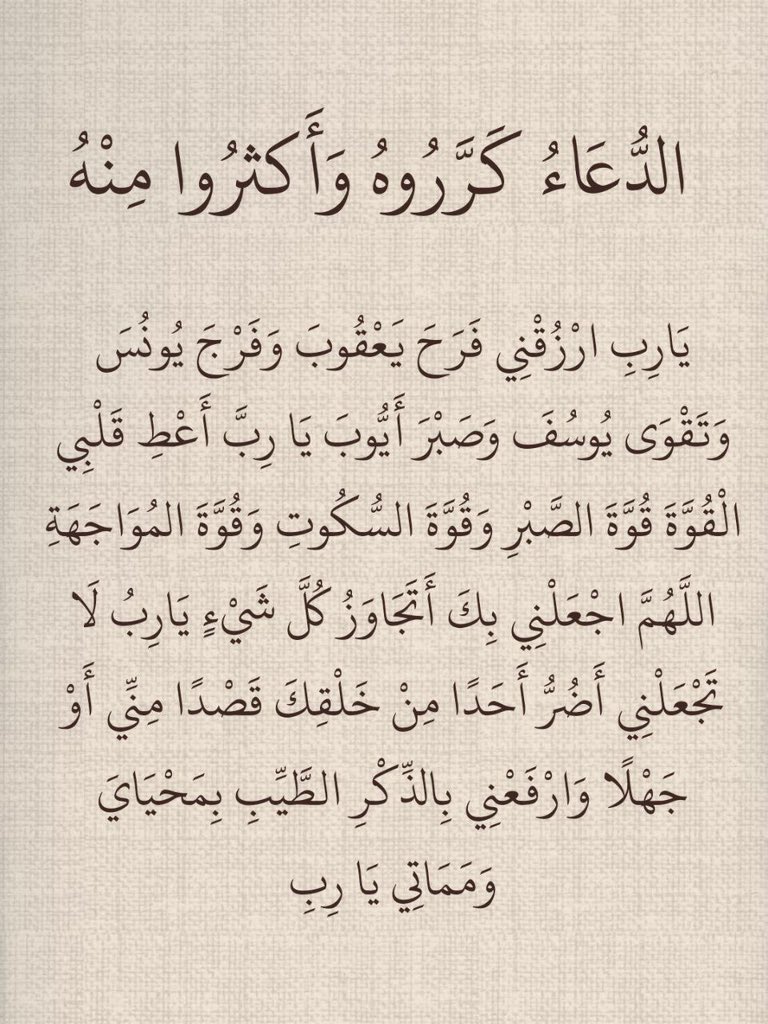 الدُّعَاءُ كَرَّرُوهُ وَأَكثرُوا مِنْهُ
يَارِبِ ارْزُقْنِي فَرَحَ يَعْقُوبَ وَفَرْجَ يُونُسَ
وَتَقْوَى يُوسُفَ وَصَبْرَ أَيُّوبَ يَا رِبَّ أَعْطِ قَلْبِي
الْقُوَّةَ قُوَّةَ الصَّبْرِ وَقُوَّةَ السُّكُوتِ وَقُوَّةَ المُوَاجَهَةِ
اللَّهُمَّ اجْعَلْنِي بِكَ أَتَجَاوَزُ كُلَّ شَيْءٍ يَارِبُ لَا
تَجْعَلْنِي أَضُرُّ أَحَدًا مِنْ خَلْقِكَ قَصْدًا مِنِّي أَوْ
جَهْلًا وَارْفَعْنِي بِالذِّكْرِ الطَّيِّبِ بِمَحْيَايَ
وَمَمَاتِي يَا رِبِ